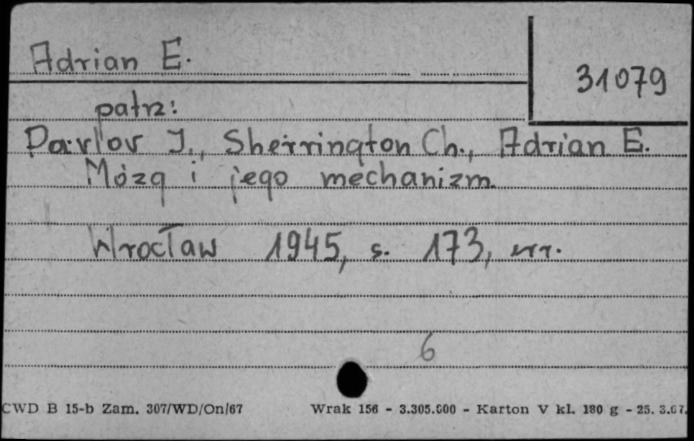 Adrian E.
31079
patrz:
Pavlov J., Sherrington Ch., Adrian E.
Mózg i jego mechanizm.
Wrocław 1945, s. 173, err.
6
CWD B 15-b Zam. 307/WD/On/67 Wrak 156 - 3.305.000 - Karton V kl. 180 g - 25. 3.67.